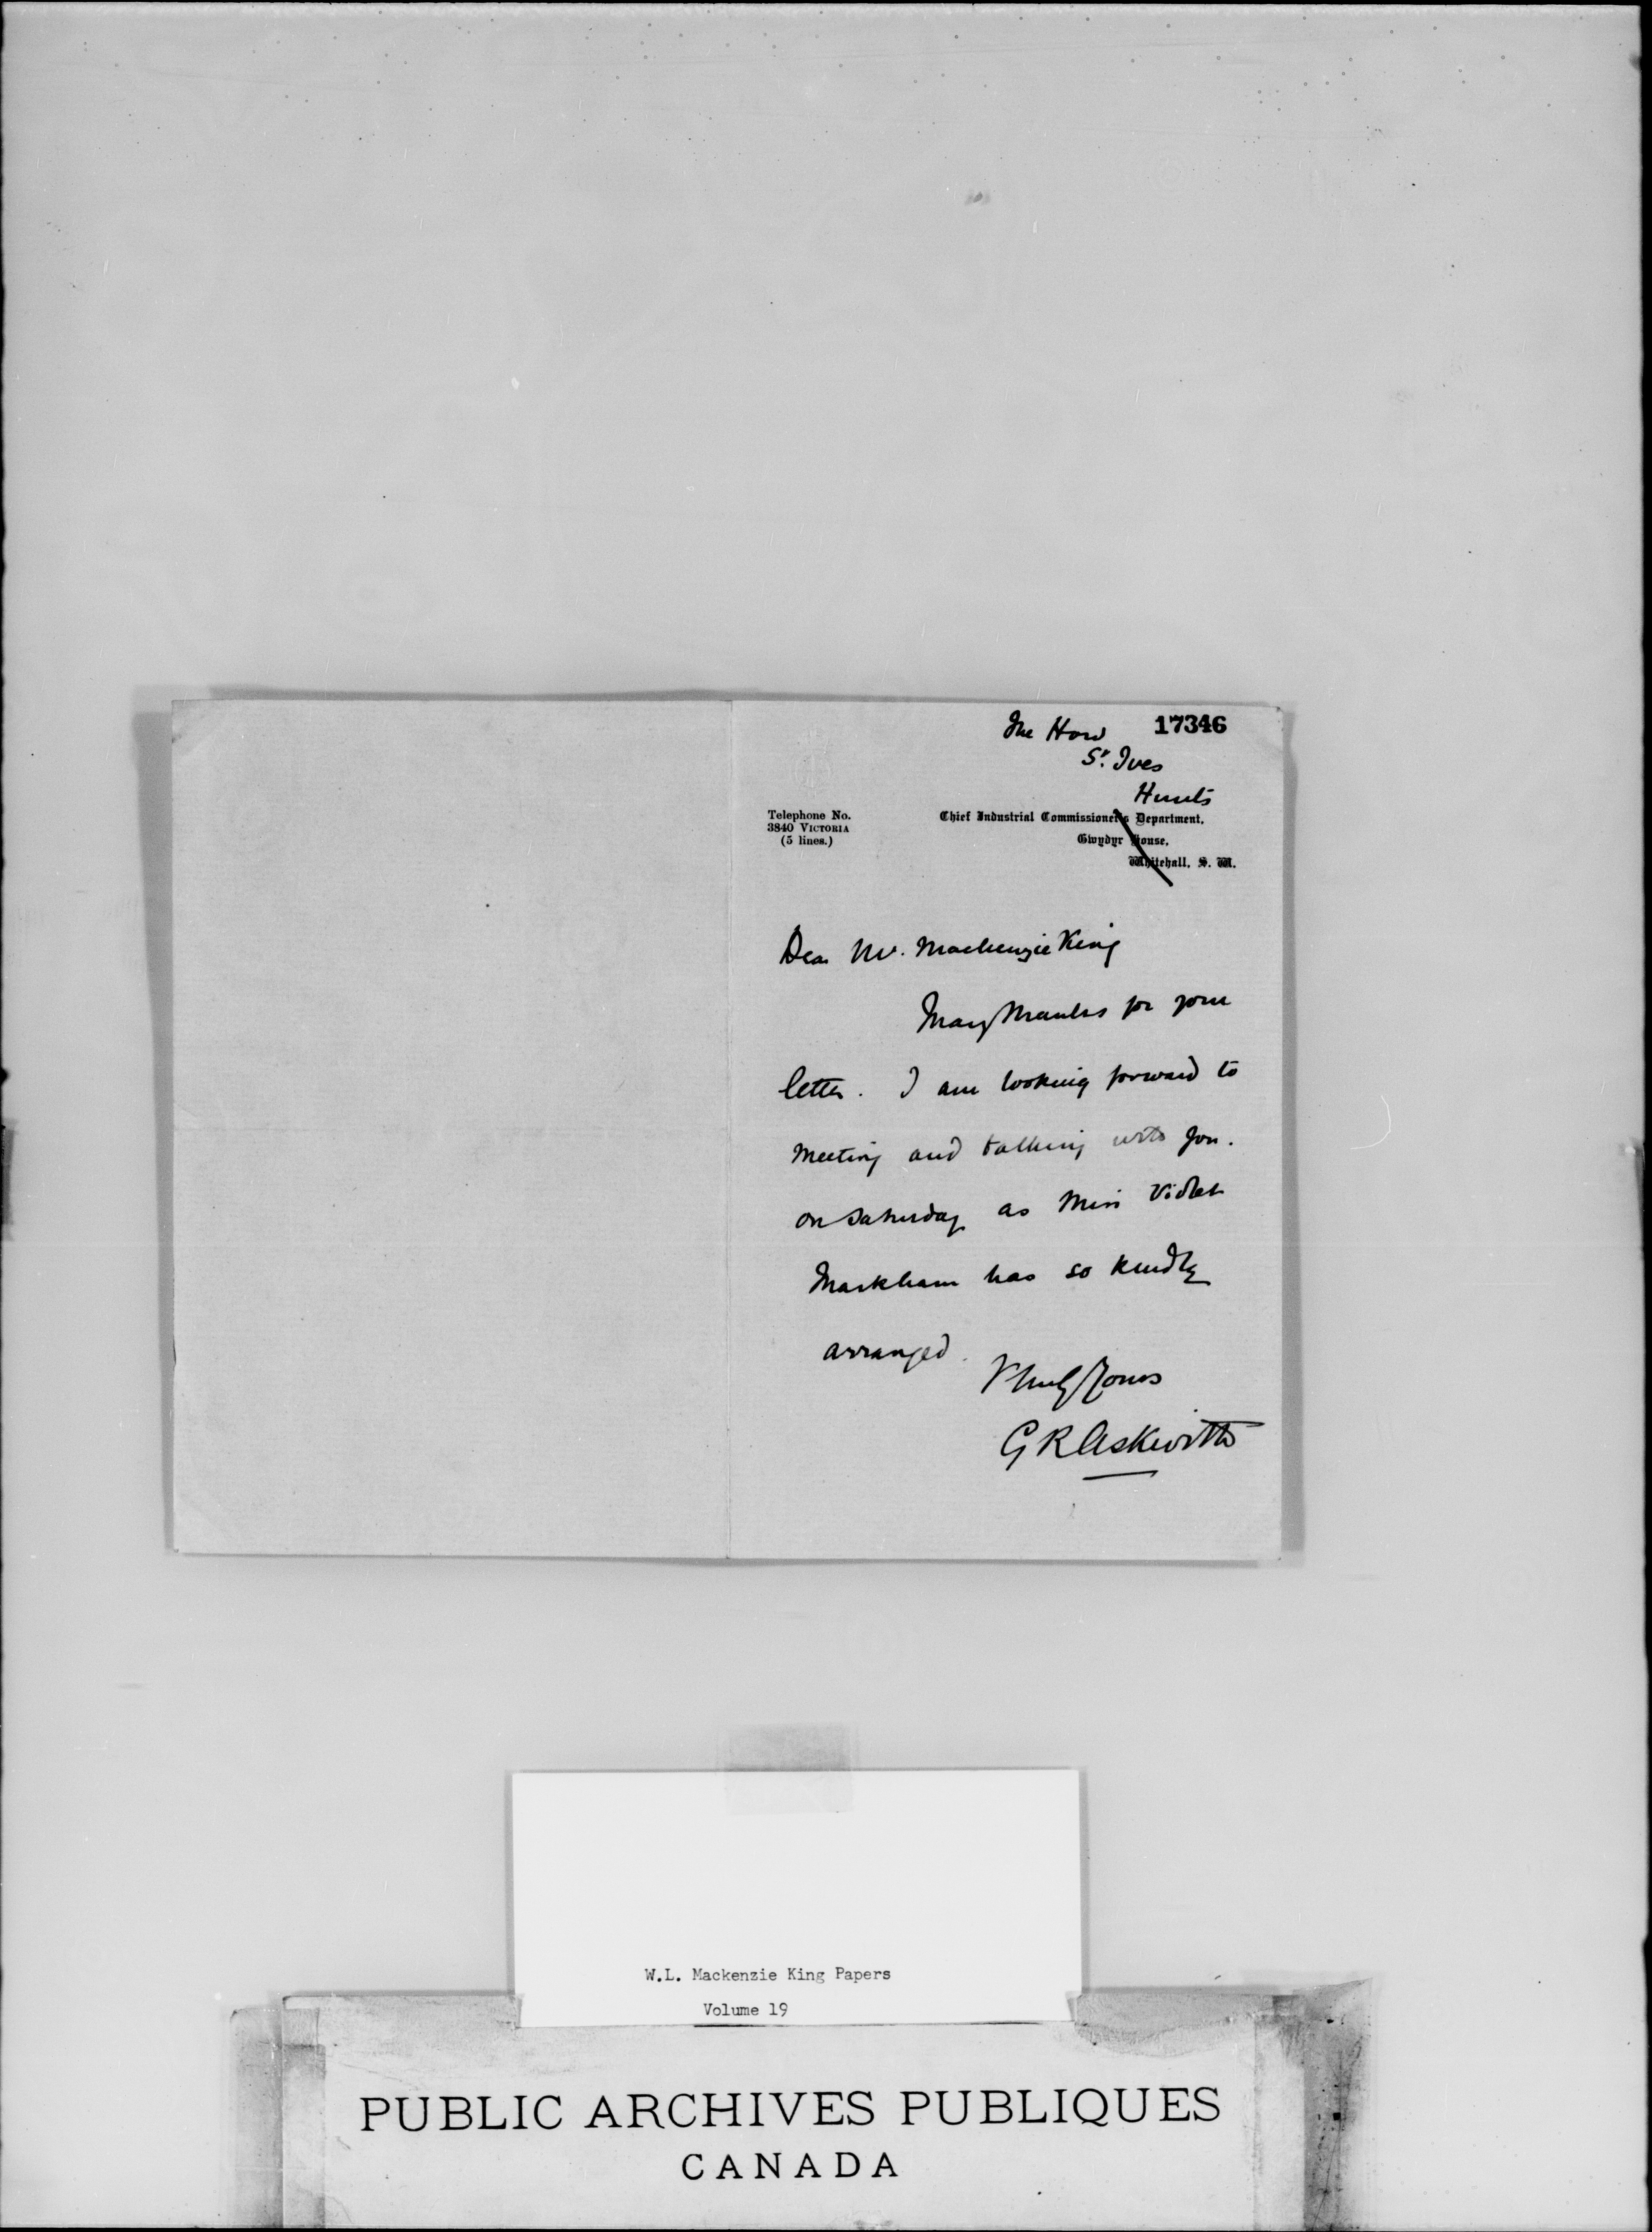 The How 17346
St. Ives
Hunts
Telephone No.
3840 VICTORIA
(5 lines.)
Chief Industrial Commissioner's Department,
Gwydyr House,
Whitehall, S. W.
Dear Mr. Mackenzie King
Many thanks for your
letter. I am looking forward to
meeting and talking with you.
on Saturday as Miss Violet
Markham has so kindly
arranged.
Truly Yours
G R Askwith
W.L. Mackenzie King Papers
Volume 19
PUBLIC ARCHIVES PUBLIQUES
CANADA